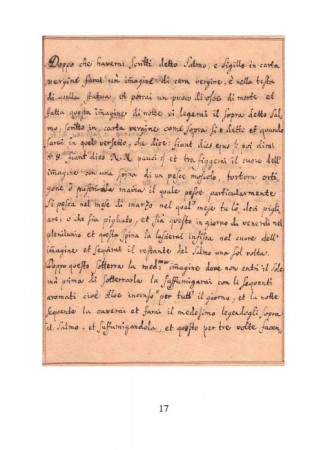 Doppo che haverai scritti detto Salmo, e Sigillo in carta
vergine farai un imagine di cera vergine, è nella testa
di quella statua, et porrai un puoco di osse di morte et
fatta questa imagine di notte vi legerai il sopra detto Sal-
mo, scritto in carta vergine come sopra si è detto et quando
sarai in quel versetto, che dice: fiant dies eius &c. voi dirai
fiant dies N.N. pauci et traffiggerai il cuore dell'
imagine con una spina di un pesce
il quale pesce particularmente
Si pesca nel mese di marzo nel qual mese tu lo dei pigli-
are, ò che sia pigliato, et sia questo in giorno di venerdi nel
plenilunio et questa spina la lascerai infissa nel cuore dell'
imagine et seguirai il restante del Salmo una sol volta.
Doppo questo sotterra la medma imagine dove non entri il Sole
mà prima di Sotterrarla la Suffumigarai con li Sequenti
aromati cioè Aloe incenso per tutt'il giorno, et la notte
sequente la caverai et farai il medesimo legendogli sopra
il Salmo, et Suffumigandola, et questo per tre volte facen,
17